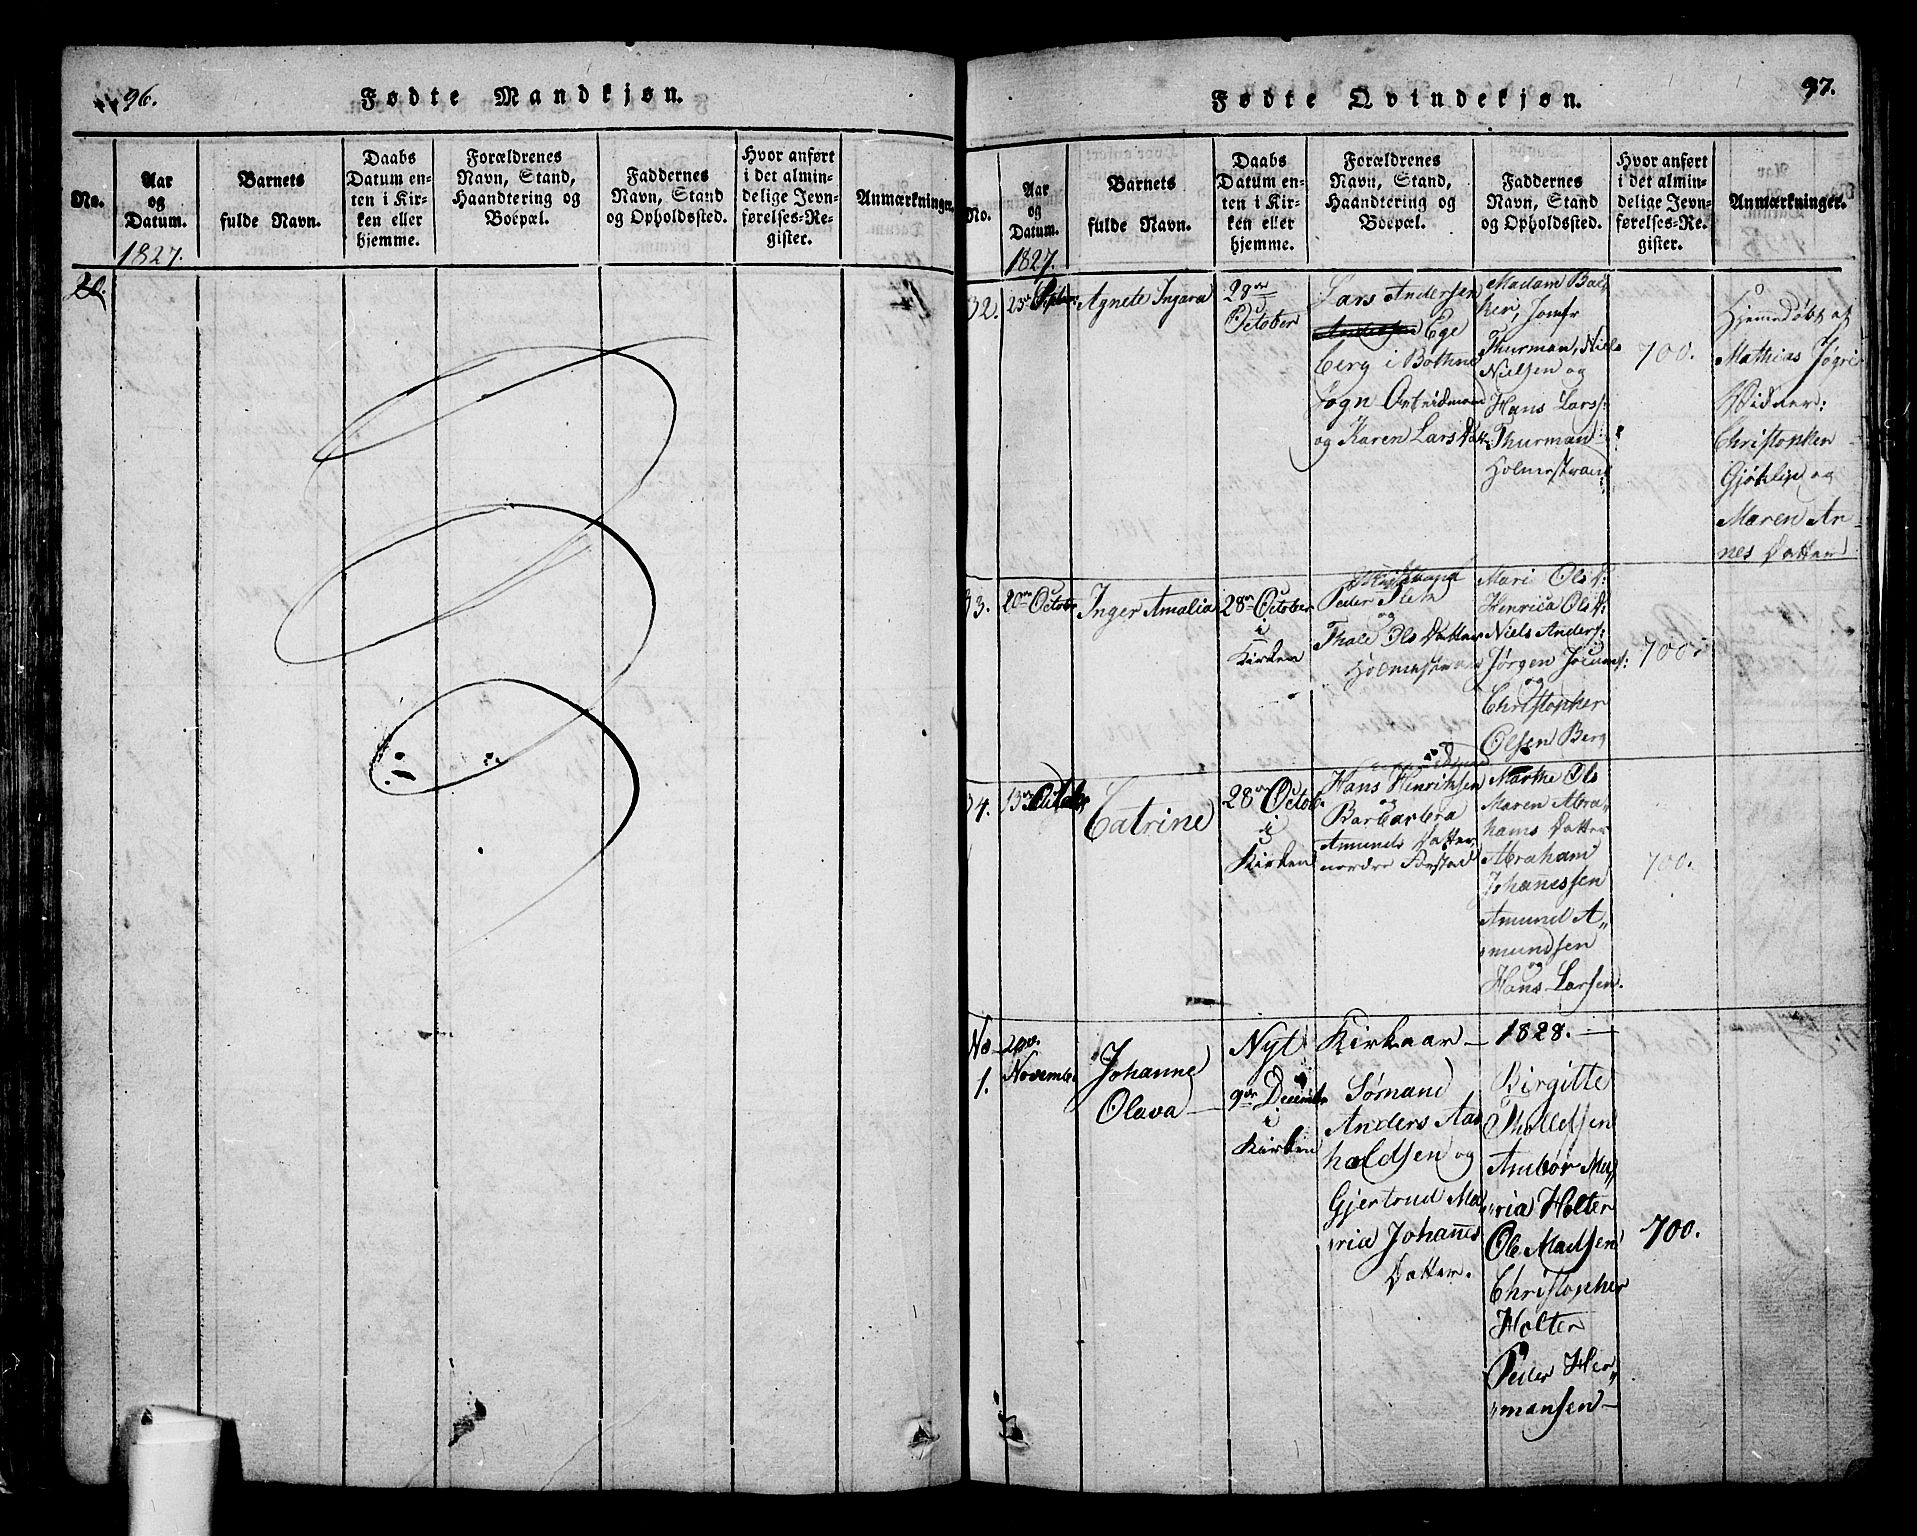 96.
Fødte Mandkjøn.
No.
Aar
og
Datum.
1827.
Barnets
fulde Navn.
Daabs
Datum en-
ten i Kir-
ken eller
hjemme.
Forældrenes
Navn, Stand,
Haandtering og
Boepæl.
Faddernes
Navn, Stand
og Opholdssted.
Hvor anført
i det almin-
delige Jevn-
førelses-Re-
gister.
Anmærkninger.
20.
Fødte Qvindekjøn.
97.
No.
Aar
og
Datum.
1827.
Barnets
fulde Navn.
Daabs
Datum en-
ten i Kir-
ken eller
hjemme.
Forældrenes
Navn, Stand,
Haandtering og
Boepæl.
Faddernes
Navn, Stand
og Opholdssted.
Hvor anført
i det almin-
delige Jevn-
førelses-Re-
gister.
Anmærkninger.
32.
Agnete Ingara
28de
October
Lars Andersen
Andersen Ege
berg i Bothne
Sogn
og Karen Lars Datt:
Madam Bac
ker, Jomfr
Thurman, Niels
Nielsen og
Hans Larss:
Thurman
Holmestrand
700.
Hjemmedøbt af
Mathias
Vidner:
Christopher
og
Maren Ar-
nes Datter
33.
20de October
Inger Amalia
28de October
i
Kirken
Peder
og
Thale Ols Datter
Holmestrand
Mari Ols D:
Henrica Ols D:
Niels Anders:
Jørgen Jocums:
og
Christopher
Olsen Berg
700.
34.
13de October
Catrine
28de Octob.
i
Kirken
Hans Henriksen
og
Barbarbra
Amunds Datter
nordre
Marthe Ols
Maren Abra-
hams Datter
Abraham
Johanessen
Amund A-
mundsen
og
Hans Larsen.
700.
No
1.
November
Johanne
Olava
Nyt Kirkaar - 1828. -
9de December
i
Kirken
Sømand
Anders Aas
holdsen og
Gjertrud Ma-
ria Johannes
Datter.
Birgitte
Tholledsen
Ambor Ma-
ria Holter
Ole Madsen
Christopher
Holter
Peder Her-
mansen -
700.